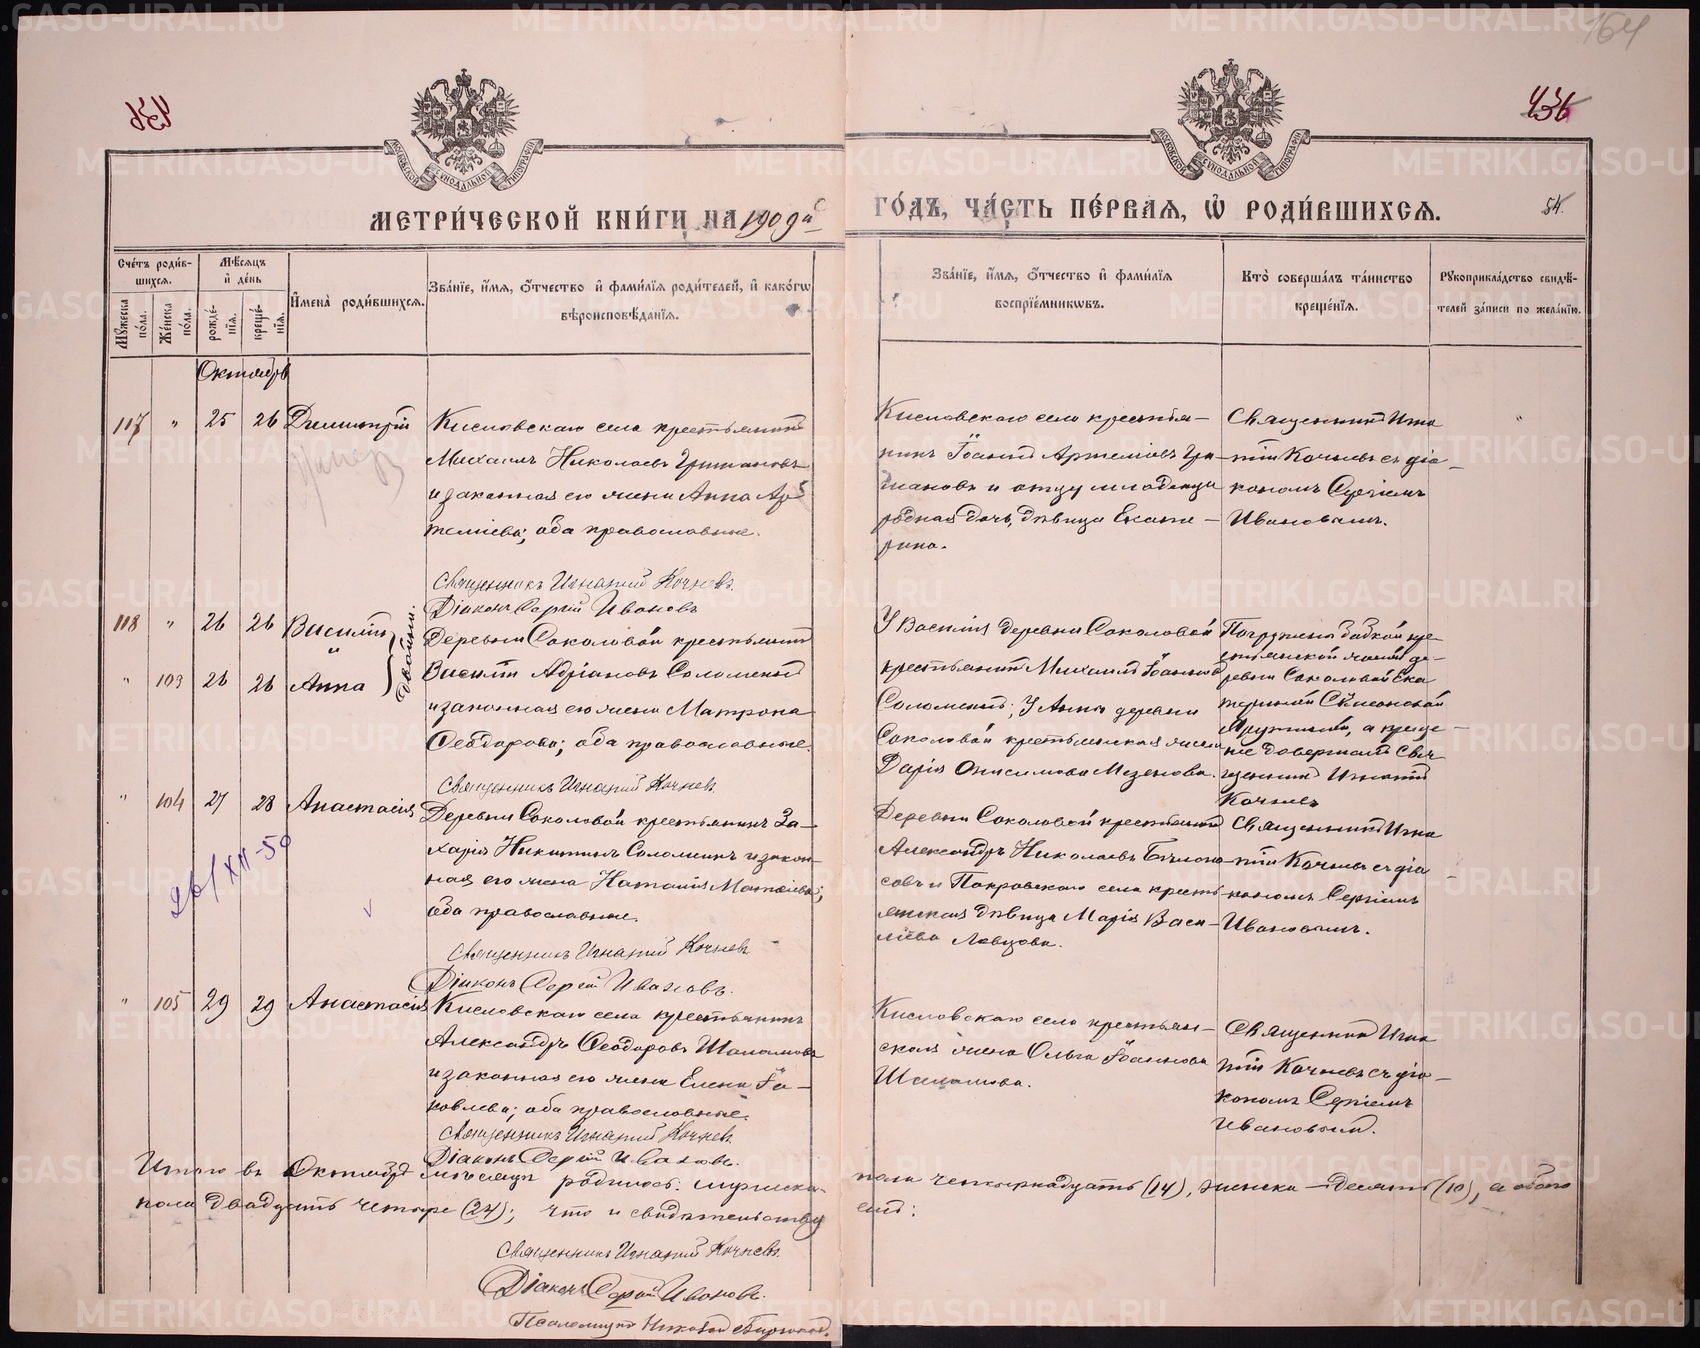 164
436
МЕТРИ́ЧЕСКОЙ КНИ́ГИ НА 1909й ГО́ДЪ, ЧА́СТЬ ПЕ́РВАЯ, Ѡ҆ РОДИ́ВШИХСЯ.
54.
Сче́тъ роди́вшихся.
Му́жеска по́ла.
Же́нска по́ла.
Мѣ́сяцъ и҆ де́нь
рожде́нїя.
креще́нїя.
И҆мена̀ роди́вшихся.
Зва́нїе, и҆́мя, ѻ҆́тчество и҆ фами́лїя роди́телей, и҆ како́гѡ
вѣроисповѣ́данїя.
Зва́нїе, и҆́мя, ѻ҆́тчество и҆ фами́лїя
воспрїе́мниковъ.
Кто̀ соверша́лъ та́инство
креще́нїя.
Рꙋкоприкла́дство свидѣ́-
телей за́писи по жела́нїю.
Октябрь
117 " 25 26 Димитрій
Кисловскаго села крестьянинъ
Михаилъ Николаевъ
и законная его жена Анна Ар-
теміева; оба православные.
Священникъ Игнатій Кочневъ.
Діаконъ Сергій Ивановъ
Кисловскаго села крестья-
нинъ Іоаннъ Артеміевъ
и отцу младенца
родная дочь, дѣвица Екате-
рина.
Священникъ Игна-
тій Кочневъ съ діа-
кономъ Сергіемъ
Ивановымъ.
118 " 26 26 Василій
" 103 26 26 Анна
двойни.
Деревни Соколовой крестьянинъ
Василій Адріановъ Соломеинъ
и законная его жена Матрона
Ѳеодорова; оба православные.
Священникъ Игнатій Кочневъ
У Василія деревни Соколовой
крестьянинъ Михаилъ Іоанновъ
Соломеинъ; У Анны деревни
Соколовой крестьянская жена
Дарія Онисимова Мезенова.
Погружены бабкой кре-
стьянской женой де-
ревни Соколовой Ека-
териной Сѵмеоновой
а креще-
ніе довершалъ Свя-
щенникъ Игнатій
Кочневъ
" 104 27 28 Анастасія
26/XII-50
Деревни Соколовой крестьянинъ За-
харія Никитинъ Соломеинъ и закон-
ная его жена Наталія Матѳіева;
оба православные.
Священникъ Игнатій Кочневъ
Діаконъ Сергій Ивановъ.
Деревни Соколовой крестьянинъ
Александръ Николаевъ
и Покровскаго села кресть-
янская дѣвица Марія Васи-
ліева
Священникъ Игна-
тій Кочневъ съ діа-
кономъ Сергіемъ
Ивановымъ.
" 105 29 29 Анастасія
Кисловскаго села крестьянинъ
Александръ Ѳеодоровъ Шаламовъ
и законная его жена Елена Іа-
ковлева; оба православные.
Священникъ Игнатій Кочневъ.
Діаконъ Сергій Ивановъ.
Кисловскаго села крестьян-
ская жена Ольга Іоаннова
Шаламова.
Священникъ Игна-
тій Кочневъ съ діа-
кономъ Сергіемъ
Ивановымъ.
Итого въ Октябрѣ мѣсяцѣ родилось: мужеска пола четырнадцать (14), женска — десять (10), а обоего
пола двадцать четыре (24); что и свидѣтельствуемъ:
Священникъ Игнатій Кочневъ.
Діаконъ Сергій Ивановъ.
Псаломщикъ Николай
METRIKI.GASO-URAL.RU